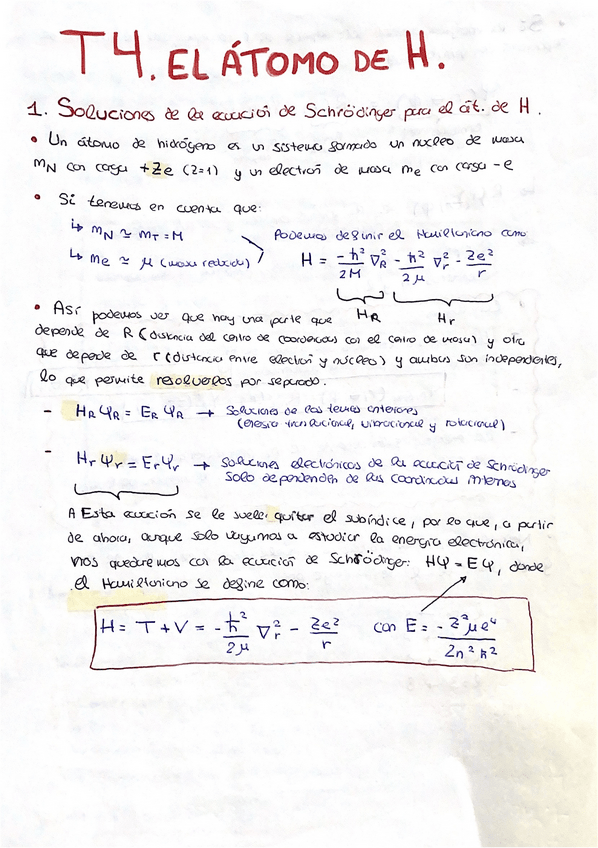 T4. EL ÁTOMO DE H.
1. Soluciones de la ecuación de Schrödinger para el át. de H.
• Un átomo de hidrógeno es un sistema formado un núcleo de masa
mN con carga +Ze (Z=1) y un electrón de masa me con carga -e
• Si tenemos en cuenta que:
↳ mN ≃ mT = M
↳ me ≃ μ (masa reducida)
Podemos definir el Hamiltoniano como
H = -ħ²/2M ∇²R - ħ²/2μ ∇²r - Ze²/r
HR Hr
• Así podemos ver que hay una parte que
depende de R (distancia del centro de coordenadas con el centro de masa) y otra
que depende de r (distancia entre electrón y núcleo) y ambas son independientes,
lo que permite resolverlos por separado.
- HR ΨR = ER ΨR → Soluciones de los temas anteriores
(energía translacional, vibracional y rotacional)
- Hr Ψr = Er Ψr → Soluciones electrónicas de la ecuación de Schrödinger
Solo dependen de las coordenadas internas
A Esta ecuación se le suele quitar el subíndice, por lo que, a partir
de ahora, aunque solo vayamos a estudiar la energía electrónica,
nos quedaremos con la ecuación de Schrödinger: HΨ = EΨ, donde
el Hamiltoniano se define como:
H = T + V = -ħ²/2μ ∇²r - Ze²/r con E = -Z²μe⁴/2n²ħ²